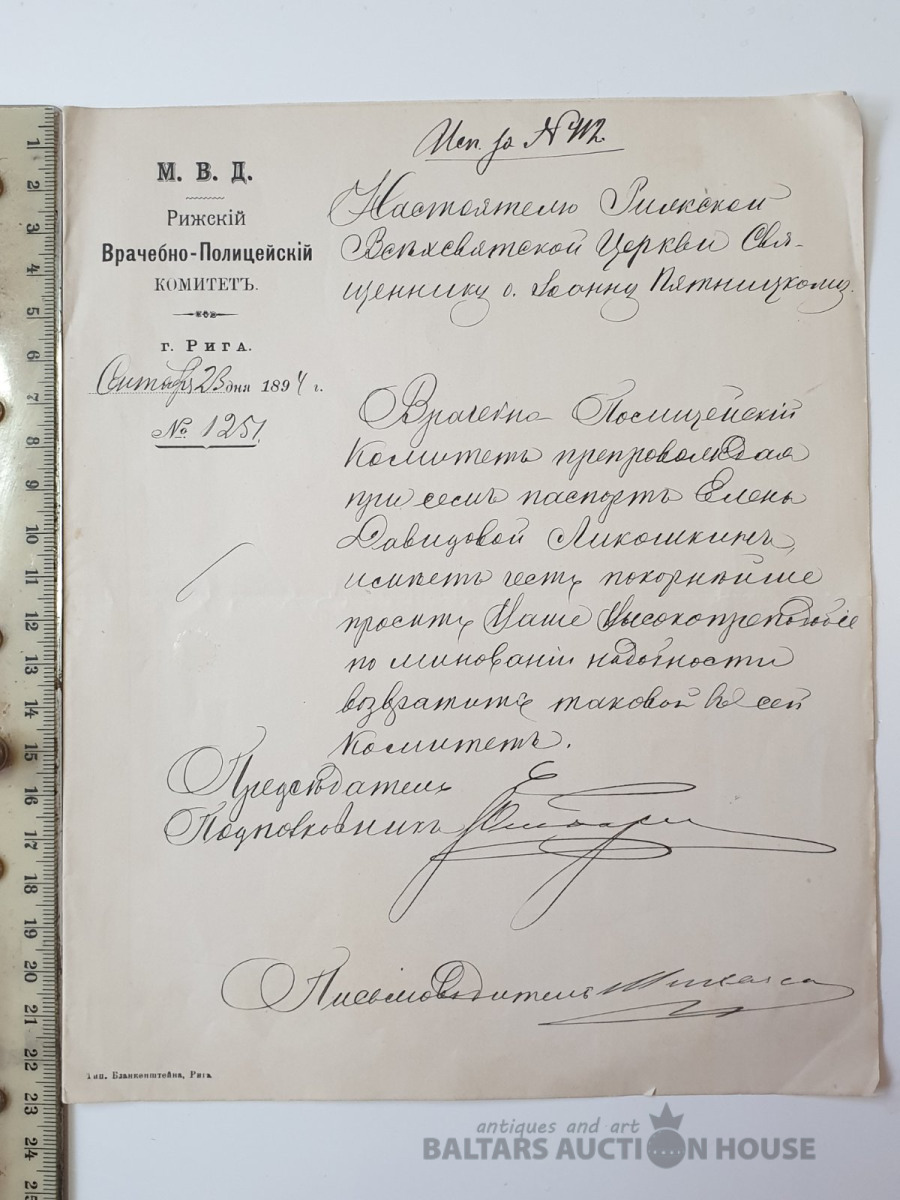 Исп. за № 412.
М. В. Д.
Рижскій
Врачебно-Полицейскій
КОМИТЕТЪ.
г. Рига.
Сентября 23 дня 1894 г.
№ 1251.
Настоятелю Рижской
Всѣхсвятской Церкви Свя-
щеннику о. Іоанну Пятницкому.
Врачебно-Полицейскій
Комитетъ препровождая
при семъ паспортъ Елены
Давидовой Ликошкинъ,
имѣетъ честь покорнѣйше
просить Ваше Высокопреподобіе
по минованіи надобности
возвратить таковой въ сей
Комитетъ.
Предсѣдатель
Подполковникъ
Письмоводитель
Тип. Бланкенштейна, Рига
antiques and art
BALTARS AUCTION HOUSE
1 2 3 4 5 6 7 8 9 10 11 12 13 14 15 16 17 18 19 20 21 22 23 24 25